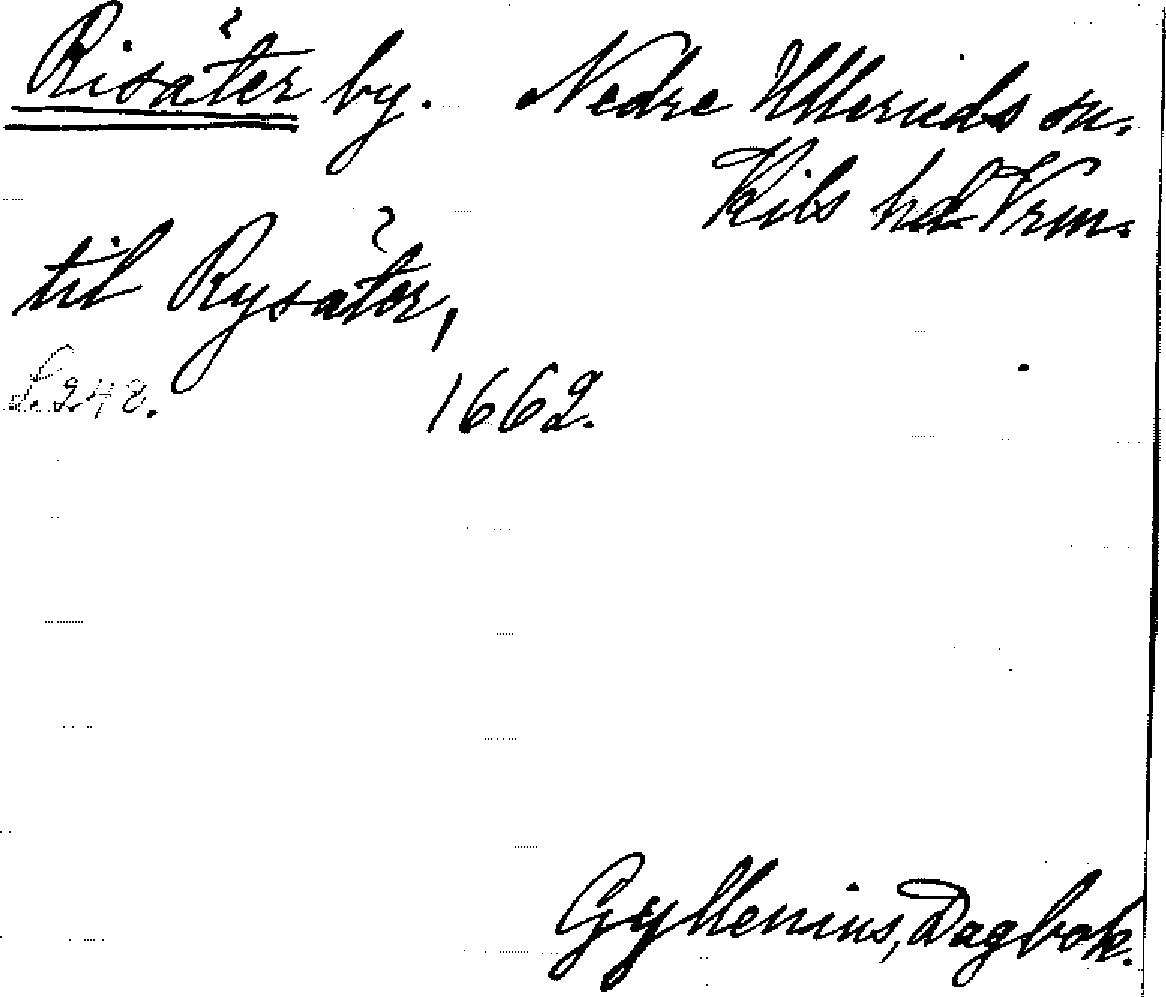 Risäter by. Nedre Ulleruds sn.
Kils hd Vrm.
til Rysäter,
S. 248. 1662.
Gyllenius, Dagbok.